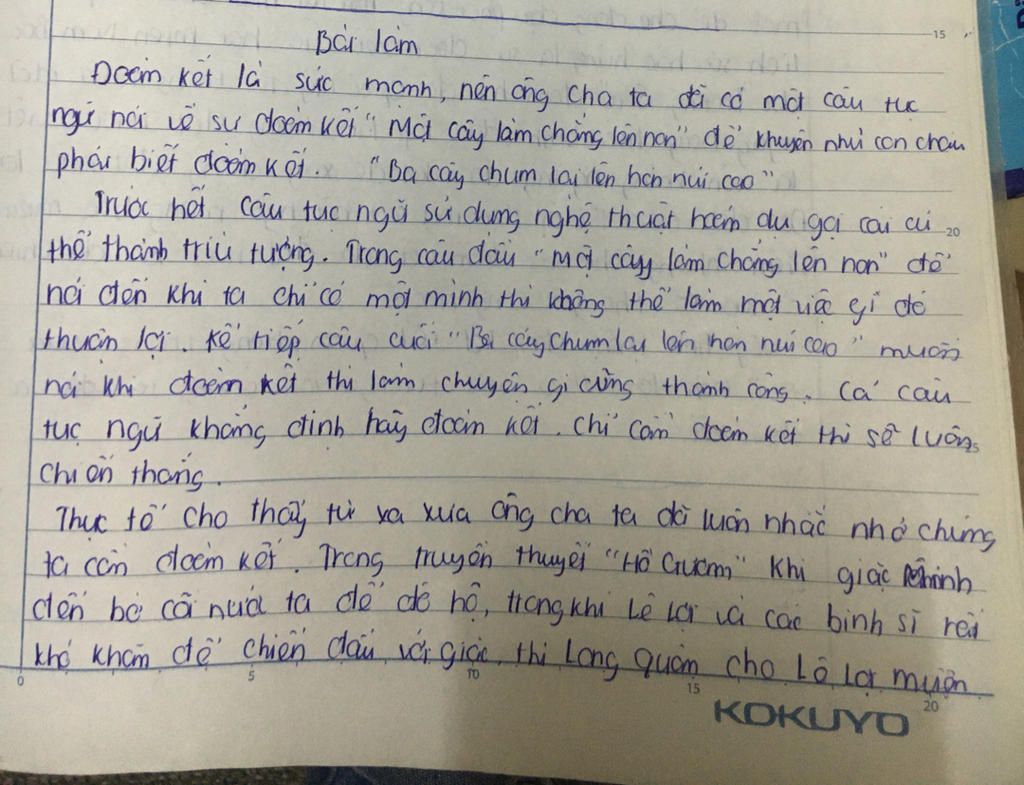 15
Bài làm
Đoàn kết là sức mạnh, nên ông cha ta đã có một câu tục
ngữ nói về sự đoàn kết "Một cây làm chẳng lên non" để khuyên nhủ con cháu
phải biết đoàn kết. "Ba cây chụm lại lên hòn núi cao"
Trước hết câu tục ngữ sử dụng nghệ thuật hoán dụ gọi cái cụ 20
thể thành trìu tượng. Trong câu đầu "Một cây làm chẳng lên non" để
nói đến khi ta chỉ có một mình thì không thể làm một việc gì đó
thuận lợi. Kế tiếp câu cuối "Ba cây chụm lại lên hòn núi cao" muốn
nói khi đoàn kết thì làm chuyện gì cũng thành công. Cả câu
tục ngữ khẳng định hãy đoàn kết. Chỉ cần đoàn kết thì sẽ luôn
chiến thắng.
Thực tế cho thấy từ xa xưa ông cha ta đã luôn nhắc nhở chúng
ta cần đoàn kết. Trong truyền thuyết "Hồ Gươm" khi giặc Minh
đến bờ cõi nước ta để đô hộ, trong khi Lê Lợi và các binh sĩ rất
khó khăn để chiến đấu với giặc, thì Long Quân cho Lê Lợi mượn
0 5 10 15 20
KOKUYO